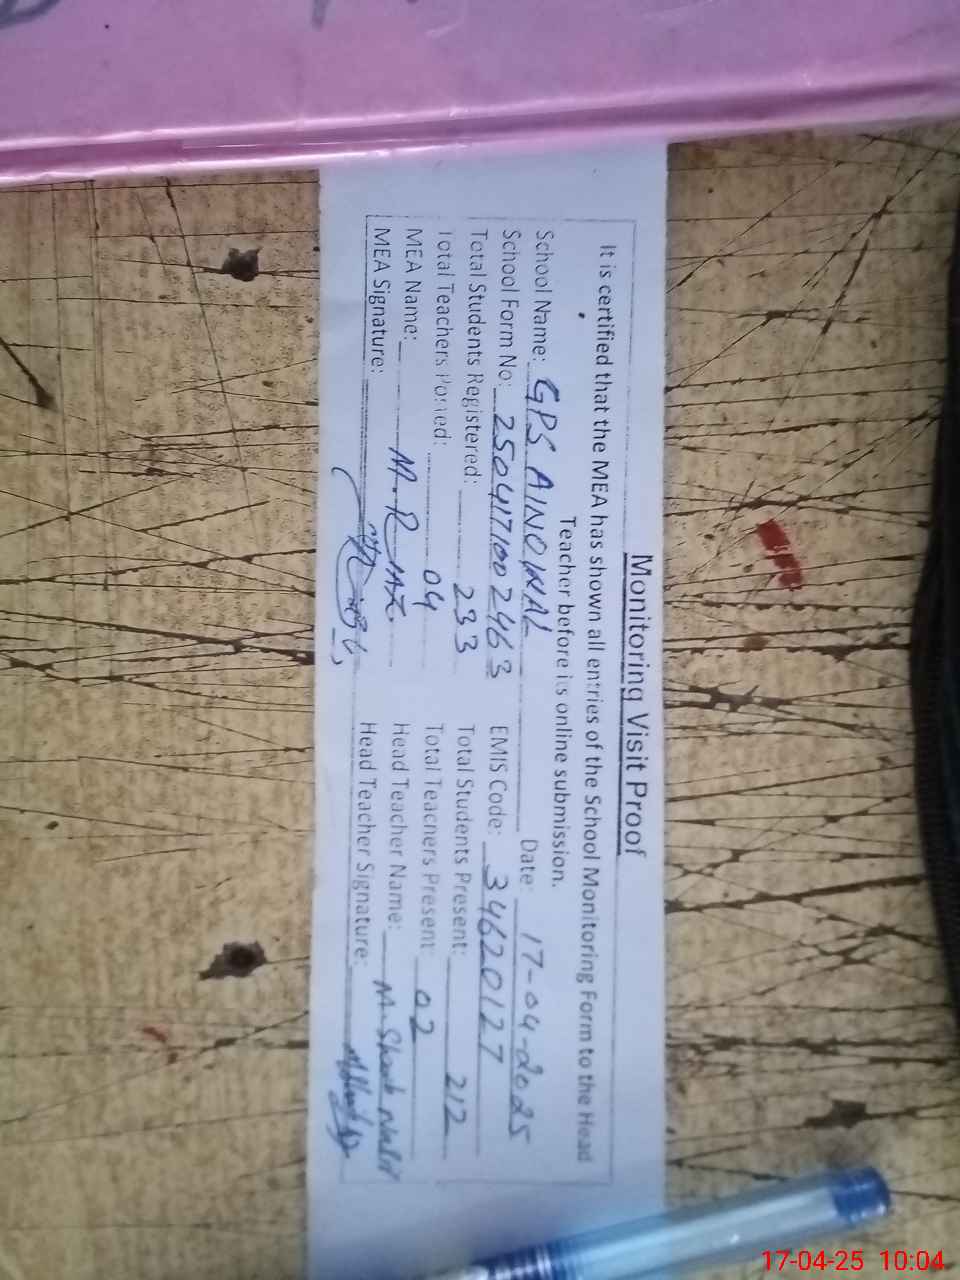 Monitoring Visit Proof
It is certified that the MEA has shown all entries of the School Monitoring Form to the Head
Teacher before is online submission.
School Name: GPS AINOWAL Date: 17-04-2025
School Form No: 2504171002463 EMIS Code: 34620127
Total Students Registered: 233 Total Students Present: 212
Total Teachers Posted: 04 Total Teachers Present: 02
MEA Name: M. RIAZ Head Teacher Name: M.
MEA Signature: Head Teacher Signature:
17-04-25 10:04